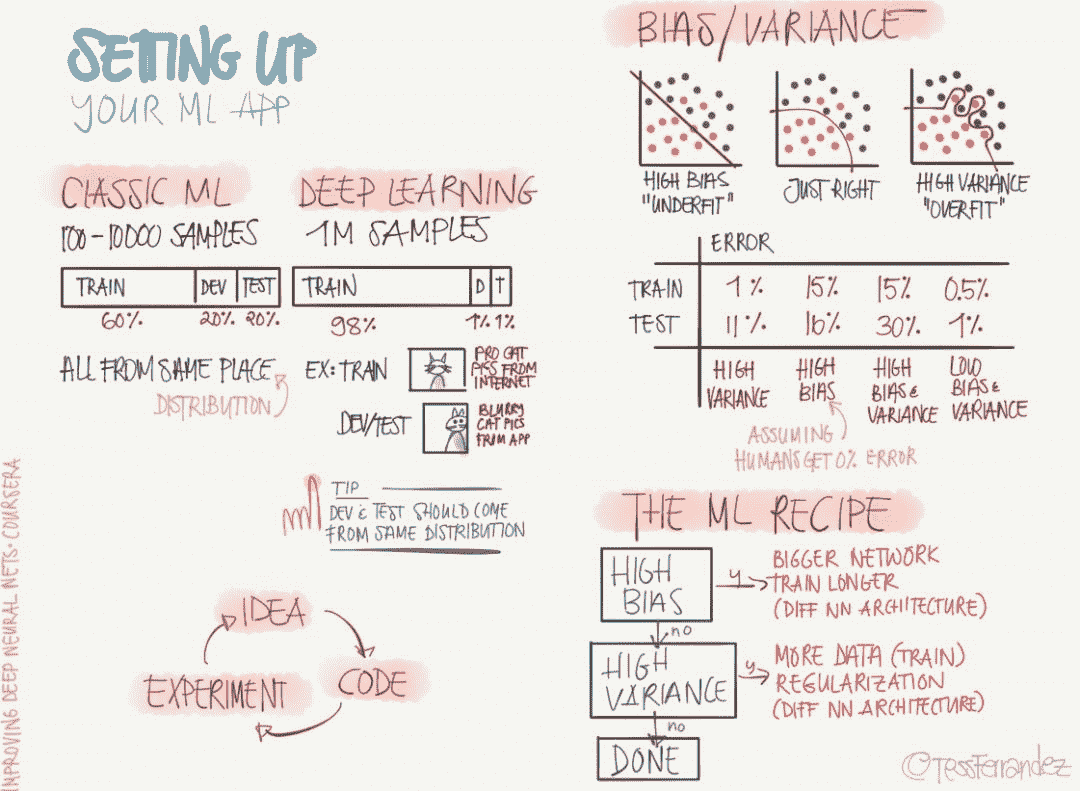 SETTING UP
YOUR ML APP
CLASSIC ML
100-10000 SAMPLES
TRAIN DEV TEST
60% 20% 20%
ALL FROM SAME PLACE
DISTRIBUTION
DEEP LEARNING
1M SAMPLES
TRAIN D T
98% 1% 1%
EX: TRAIN
PRO CAT
PICS FROM
INTERNET
DEV/TEST
BLURRY
CAT PICS
FROM APP
TIP
DEV & TEST SHOULD COME
FROM SAME DISTRIBUTION
IDEA
CODE
EXPERIMENT
IMPROVING DEEP NEURAL NETS · COURSERA
BIAS/VARIANCE
HIGH BIAS
"UNDERFIT"
JUST RIGHT
HIGH VARIANCE
"OVERFIT"
ERROR
TRAIN 1% 15% 15% 0.5%
TEST 11% 16% 30% 1%
HIGH
VARIANCE
HIGH
BIAS
HIGH
BIAS &
VARIANCE
LOW
BIAS &
VARIANCE
ASSUMING
HUMANS GET 0% ERROR
THE ML RECIPE
HIGH
BIAS
y
BIGGER NETWORK
TRAIN LONGER
(DIFF NN ARCHITECTURE)
no
HIGH
VARIANCE
y
MORE DATA (TRAIN)
REGULARIZATION
(DIFF NN ARCHITECTURE)
no
DONE
@TessFerrandez